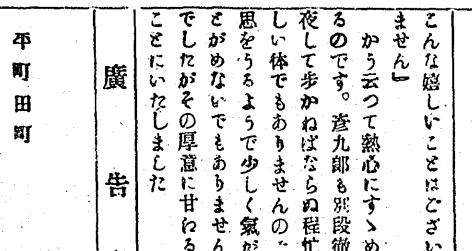 こんな嬉しいことはござい
ません』
かう云つて熱心にすゝめ
るのです。彦九郎も別段徹
夜して歩かねばならぬ程忙
しい体でもありませんの
思をうるようで少しく氣が
とがめないでもありません
でしたがその厚意に甘わる
ことにいたしました
廣告
平町田町